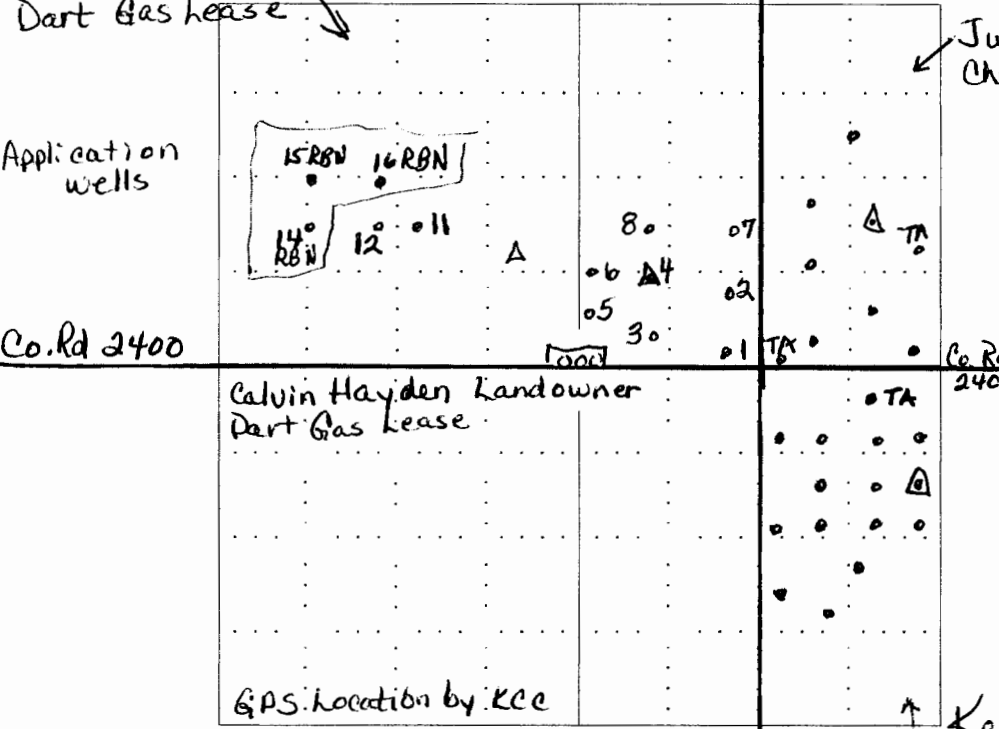 Dart Gas Lease
Ju
Ch
Application
wells
15 RBN 16 RBN
14
RBN
12
11
8
7
TA
6
4
2
5
3
1
TA
Co. Rd 2400
000
Co. Ro
240
Calvin Hayden Landowner
Dart Gas Lease
TA
GPS Location by KCC
K